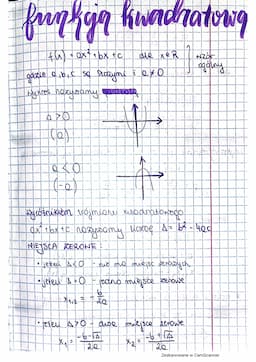 funkcja kwadratowa
f(x) = ax² + bx + c dla x∈R
wzór ogólny
gdzie a, b, c są stałymi i a ≠ 0
wykres nazywamy
a > 0
(a)
a < 0
(-a)
wyróżnikiem trójmianu kwadratowego
ax² + bx + c nazywamy liczbę Δ = b² - 4ac
MIEJSCA ZEROWE:
• jeżeli Δ < 0 - nie ma miejsc zerowych
• jeżeli Δ = 0 - jedno miejsce zerowe
x₁,₂ = -b/2a
• jeżeli Δ > 0 - dwa miejsca zerowe
x₁ = -b-√Δ/2a x₂ = -b+√Δ/2a
Zeskanowane w CamScanner